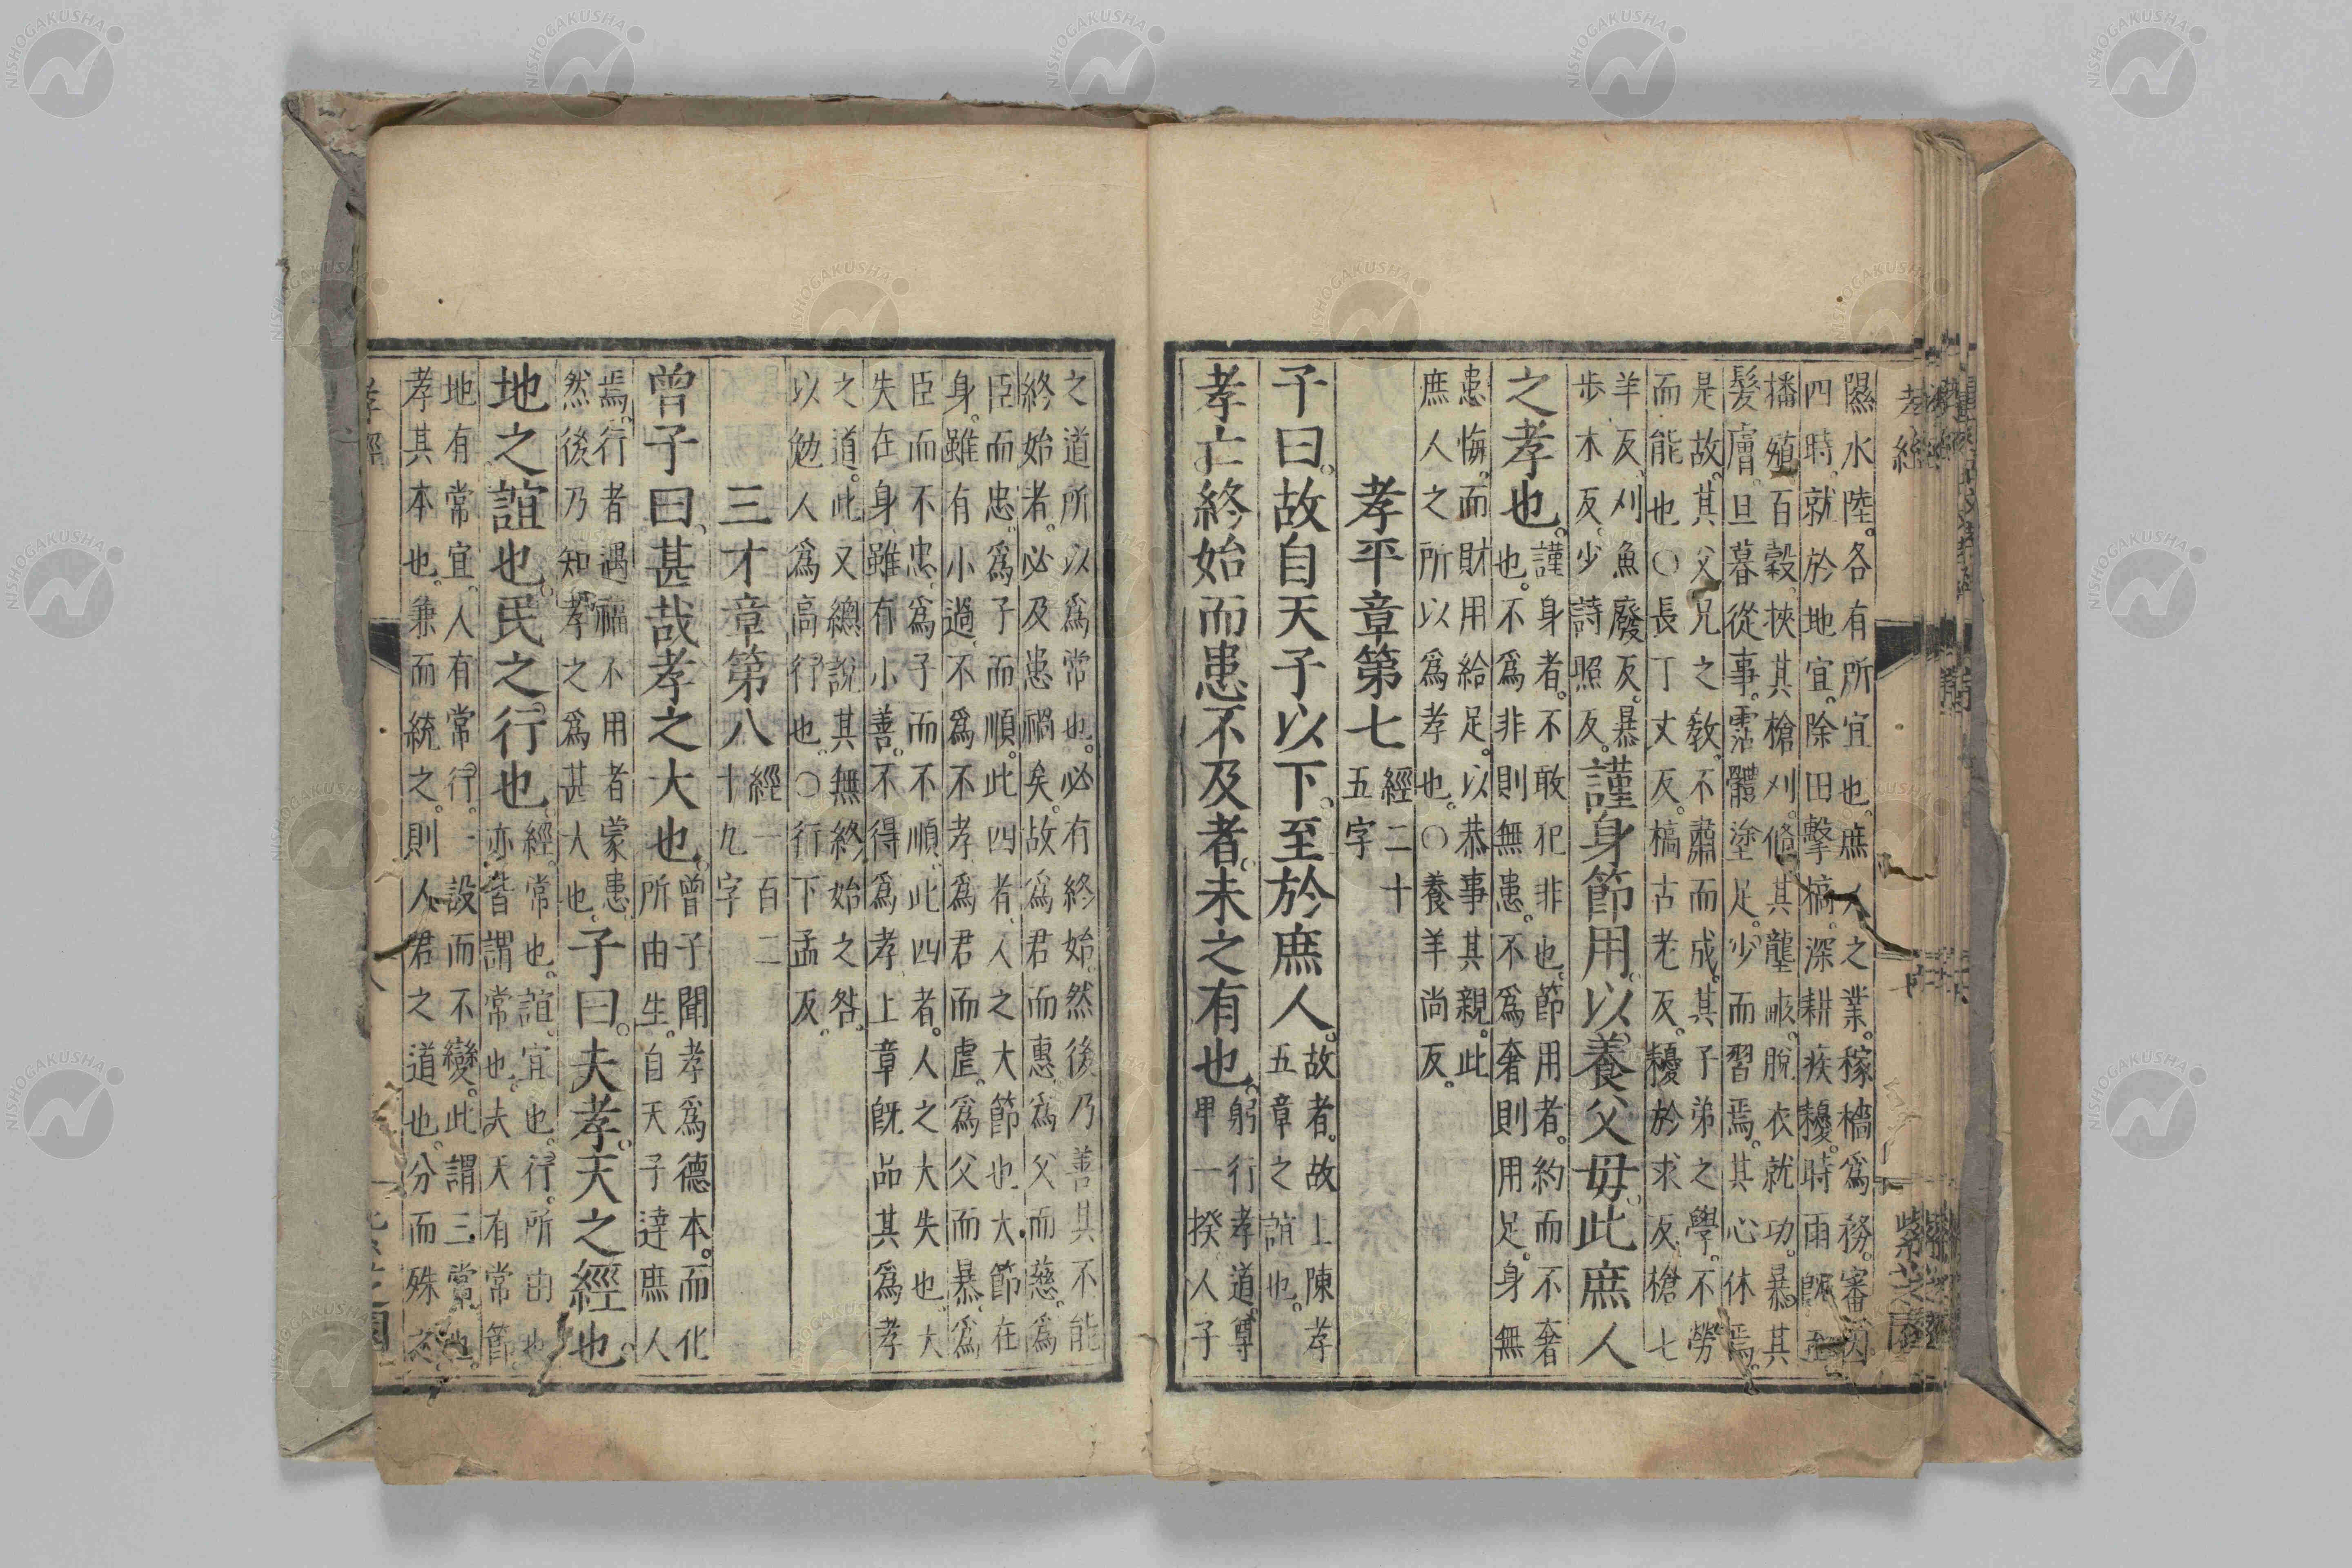 孝經 紫芝園
隰水陸。各有所宜也。庶人之業。稼穡爲務。審因
四時。就於地宜。除田擊槁。深耕疾耰。時雨既至
播殖百穀。挾其槍刈。脩其壟畝。脫衣就功。暴其
髮膚。旦暮從事。霑體塗足。少而習焉。其心休焉。
是故其父兄之敎。不肅而成。其子弟之學。不勞
而能也○長丁丈反。槁古老反。耰於求反。槍七
羊反。刈魚廢反。暴
步木反。少詩照反。
謹身節用。以養父毋。此庶人
之孝也。
謹身者。不敢犯非也。節用者。約而不奢
也。不爲非則無患。不爲奢則用足。身無
患悔。而財用給足。以恭事其親。此
庶人之所以爲孝也。○養羊尚反。
孝平章第七
經二十
五字
子曰。故自天子以下。至於庶人。
故者。故上陳孝
五章之誼也。
孝亡終始。而患不及者。未之有也。
躬行孝道。尊
卑一揆。人子
之道所以爲常也。必有終始。然後乃善其不能
終始者。必及患禍矣。故爲君而惠。爲父而慈。爲
臣而忠。爲子而順。此四者。人之大節也。大節在
身。雖有小過。不爲不孝。爲君而虐。爲父而暴。爲
臣而不忠。爲子而不順。此四者。人之大失也。大
失在身。雖有小善。不得爲孝。上章既品其爲孝
之道。此又總說其無終始之咎。
以勉人爲高行也。○行下孟反。
三才章第八
經一百二
十九字
曾子曰。甚哉孝之大也。
曾子聞孝爲德本。而化
所由生。自天子達庶人
焉。行者遇福。不用者蒙患。
然後乃知孝之爲甚大也。
子曰。夫孝。天之經也。
地之誼也。民之行也。
經。常也。誼。宜也。行。所由也
亦皆謂常也。夫天有常節
地有常宜。人有常行。一設而不變。此謂三常也。
孝其本也。兼而統之。則人君之道也。分而殊之。
孝經